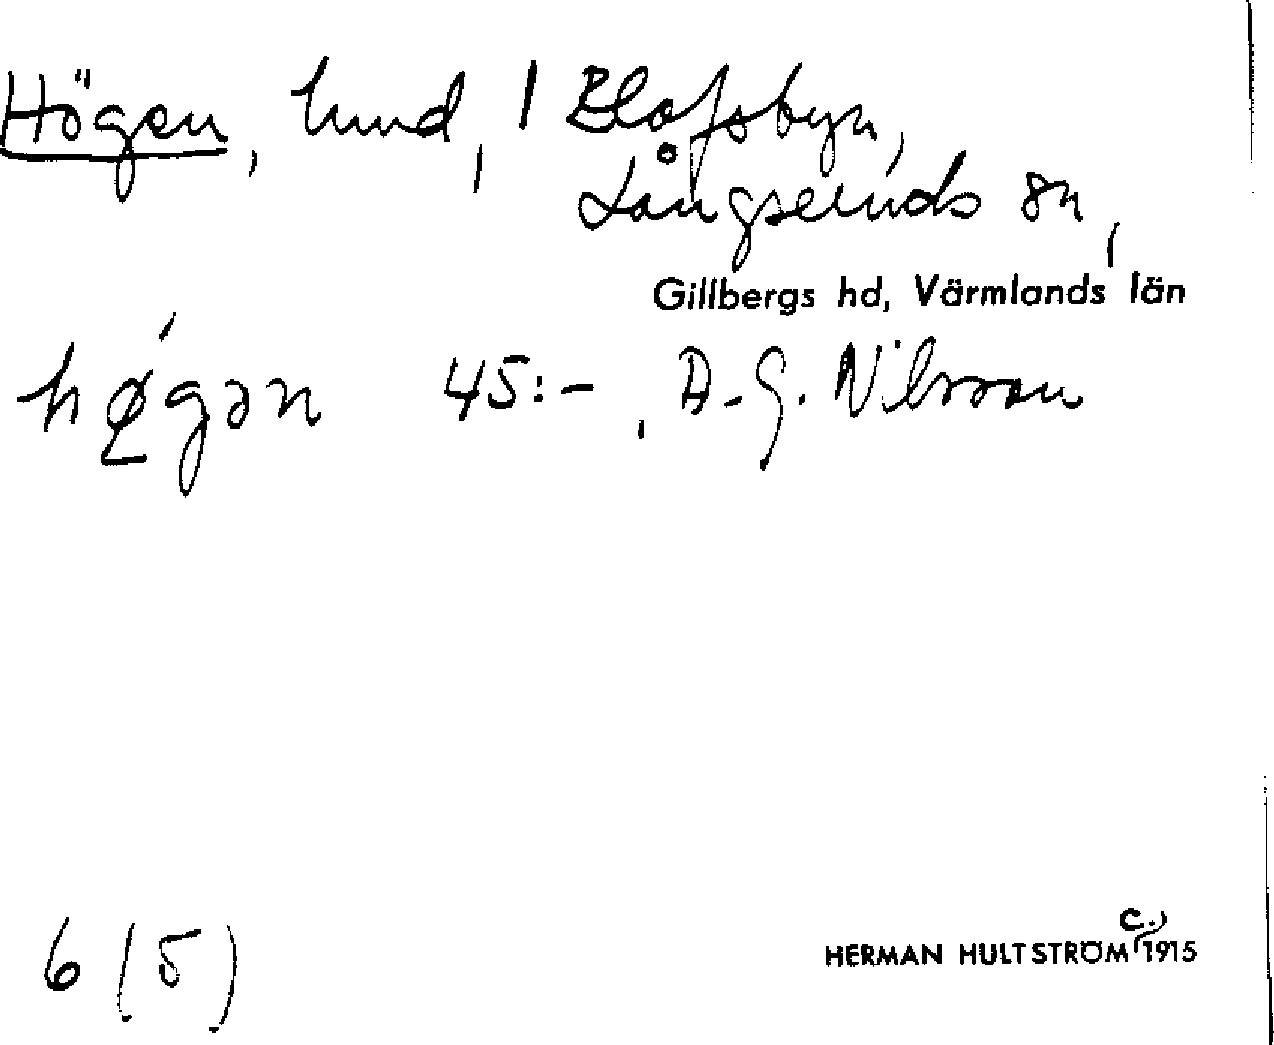 Högen, hund, 1 Elofsbyn,
Långseruds sn,
Gillbergs hd, Värmlands län
hǿ̱gən 45:-, A.G. Nilsson
6 (5)
HERMAN HULTSTRÖM c. 1915